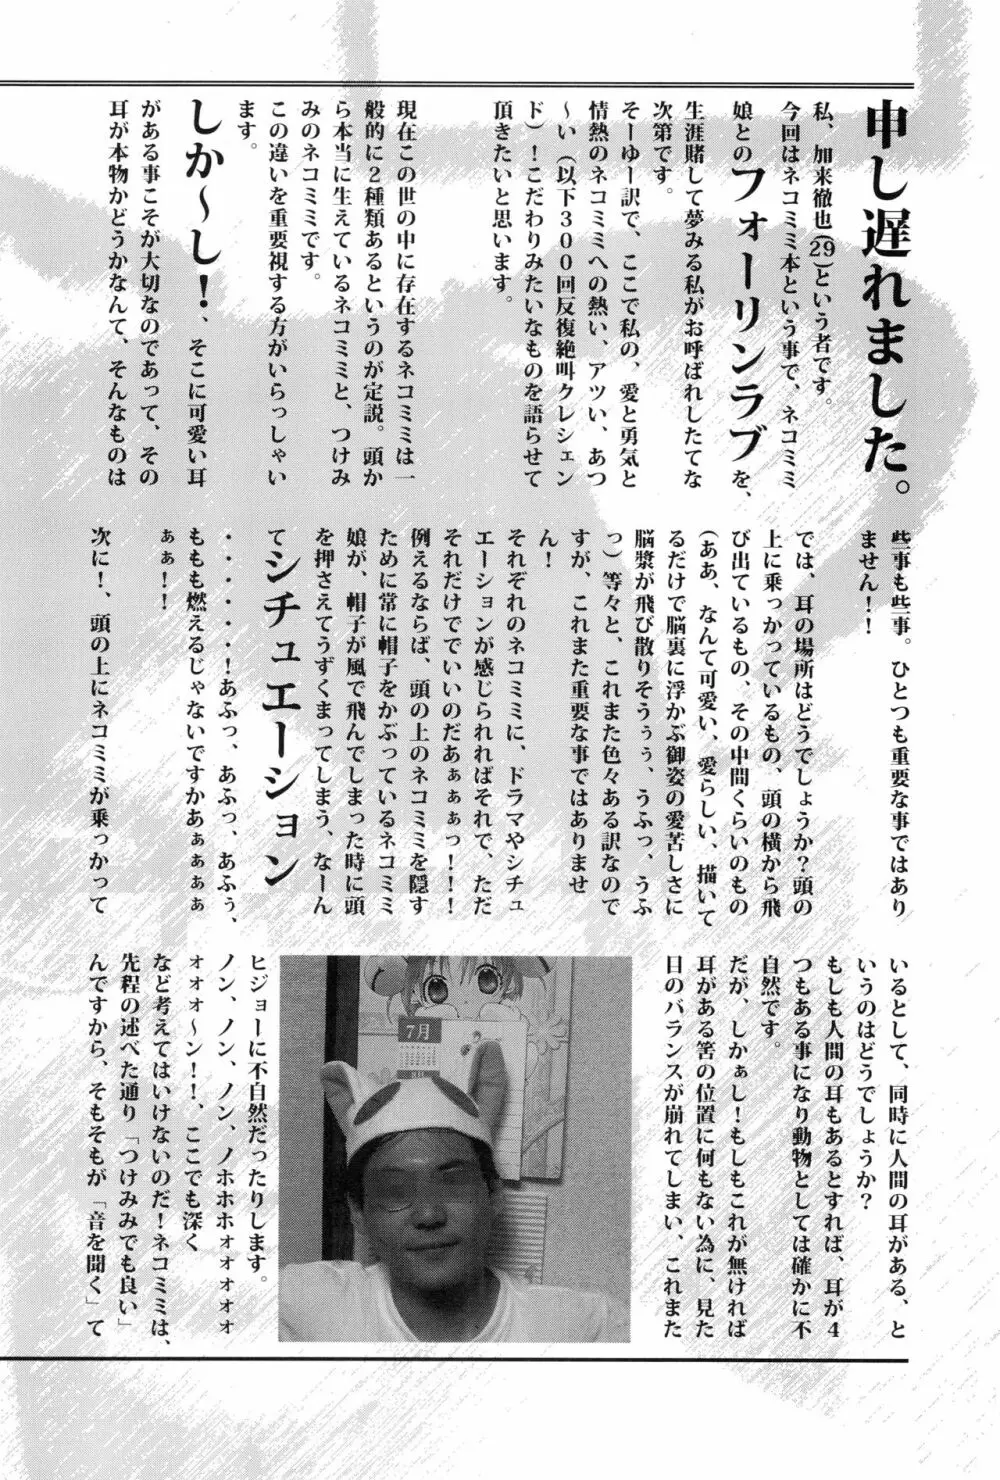 申し遅れました。
私、加来徹也(29)という者です。
今回はネコミミ本という事で、ネコミミ
娘とのフォーリンラブを、
生涯賭して夢みる私がお呼ばれしたてな
次第です。
そーゆー訳で、ここで私の、愛と勇気と
情熱のネコミミへの熱い、アツい、あつ
～い（以下３００回反復絶叫クレシェン
ド）！こだわりみたいなものを語らせて
頂きたいと思います。
現在この世の中に存在するネコミミは一
般的に２種類あるというのが定説。頭か
ら本当に生えているネコミミと、つけみ
みのネコミミです。
この違いを重要視する方がいらっしゃい
ます。
しか～し！、そこに可愛い耳
がある事こそが大切なのであって、その
耳が本物かどうかなんて、そんなものは
些事も些事。ひとつも重要な事ではあり
ません！！
では、耳の場所はどうでしょうか？頭の
上に乗っかっているもの、頭の横から飛
び出ているもの、その中間くらいのもの
（ああ、なんて可愛い、愛らしい、描いて
るだけで脳裏に浮かぶ御姿の愛苦しさに
脳漿が飛び散りそうぅぅ、うふっ、うふ
っ）等々と、これまた色々ある訳なので
すが、これまた重要な事ではありませ
ん！
それぞれのネコミミに、ドラマやシチュ
エーションが感じられればそれで、ただ
それだけででいいのだあぁぁぁっ！！！
例えるならば、頭の上のネコミミを隠す
ために常に帽子をかぶっているネコミミ
娘が、帽子が風で飛んでしまった時に頭
を押さえてうずくまってしまう、なーん
てシチュエーション
・・・・・・！あふっ、あふっ、あふぅ、
ももも燃えるじゃないですかあぁぁぁぁ
ぁぁ！！
次に！、頭の上にネコミミが乗っかって
いるとして、同時に人間の耳がある、と
いうのはどうでしょうか？
もしも人間の耳もあるとすれば、耳が４
つもある事になり動物としては確かに不
自然です。
だが、しかぁし！もしもこれが無ければ
耳がある筈の位置に何もない為に、見た
目のバランスが崩れてしまい、これまた
7月
ヒジョーに不自然だったりします。
ノン、ノン、ノン、ノホホホォォォォォ
ォォォ～ン！！、ここでも深く
など考えてはいけないのだ！ネコミミは、
先程の述べた通り「つけみみでも良い」
んですから、そもそもが「音を聞く」て